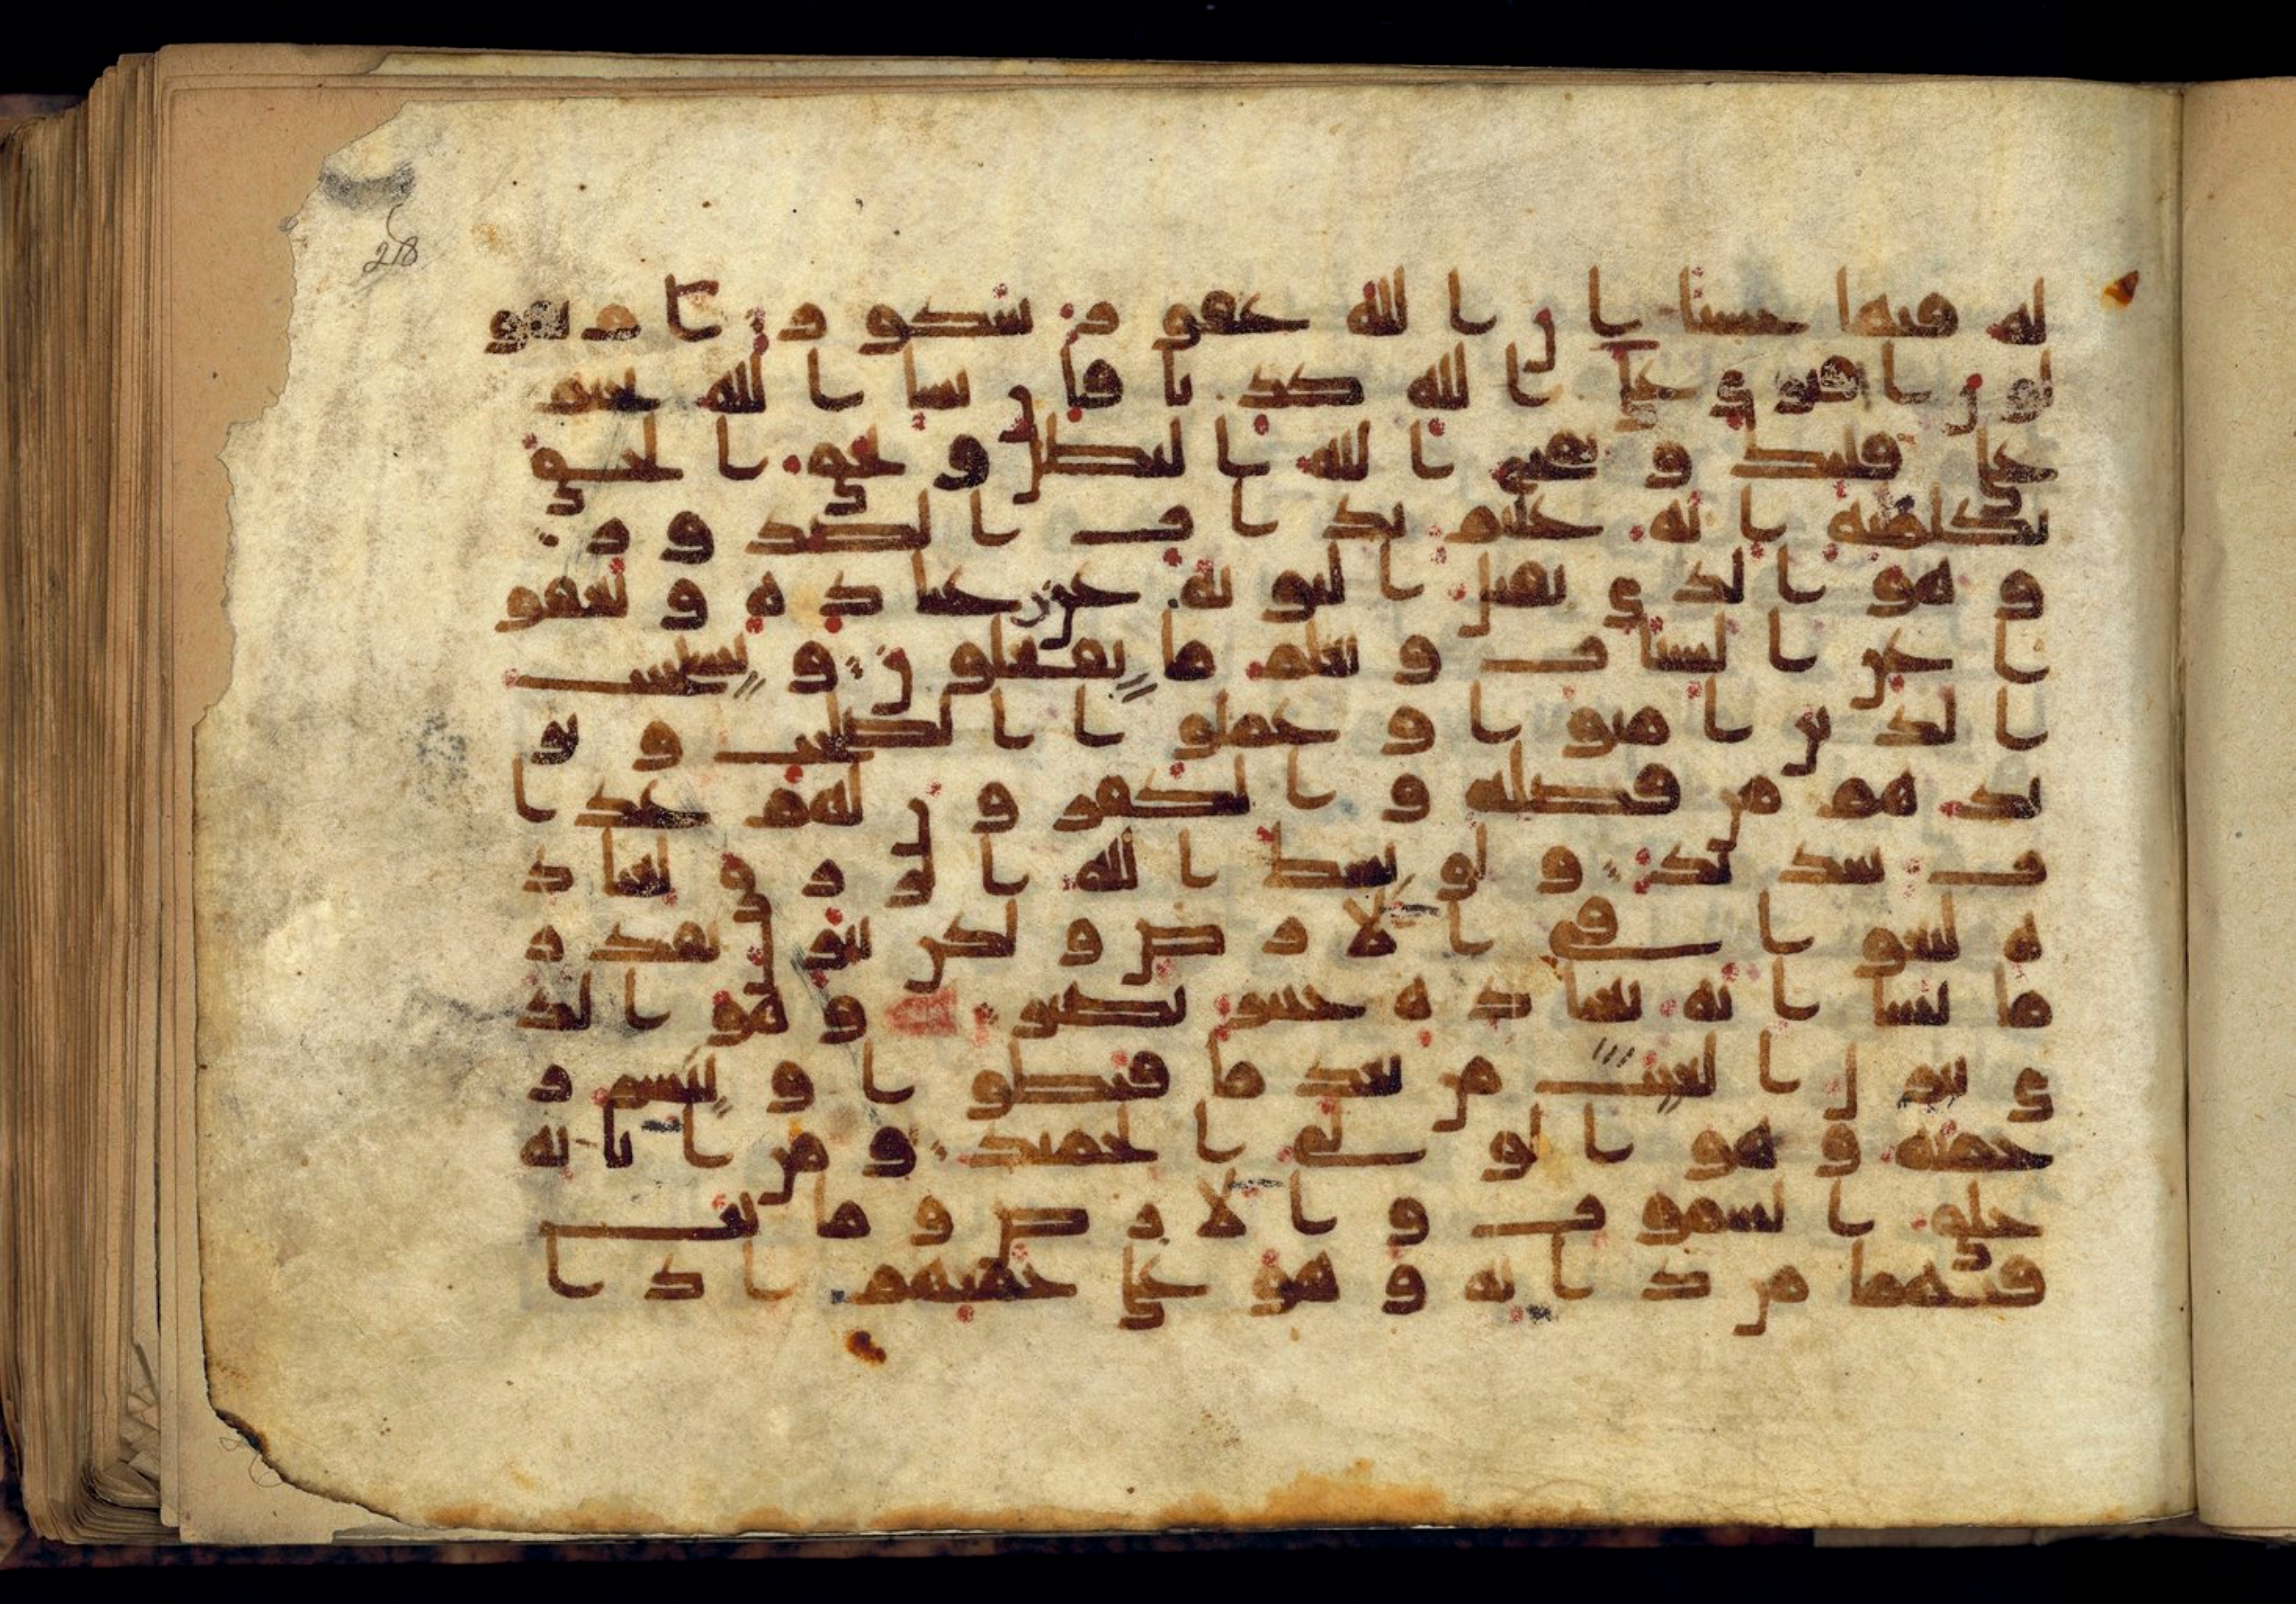 218
له فيها حسنا ان الله غفور شكور ام يقو
لون افترى على الله كذبا فان يشا الله يختم
على قلبك ويمح الله البطل ويحق الحق
بكلمته انه عليم بذات الصدور
وهو الذي يقبل التوبه عن عباده ويعفو
ا عن السيات ويعلم ما يفعلون ويستجيب
الذين امنوا وعملوا الصلحت ويز
يدهم من فضله والكفرون لهم عذا
ب شديد ولو بسط الله الرزق لعباد
ه لبغوا في الارض ولكن ينزل بقدر
ما يشا انه بعباده خبير بصير وهو الذ
ي ينزل الغيث من بعد ما قنطوا وينشر ر
حمته وهو الولي الحميد ومن ايته
خلق السموت والارض وما بث
فيهما من دابه وهو على جمعهم اذا